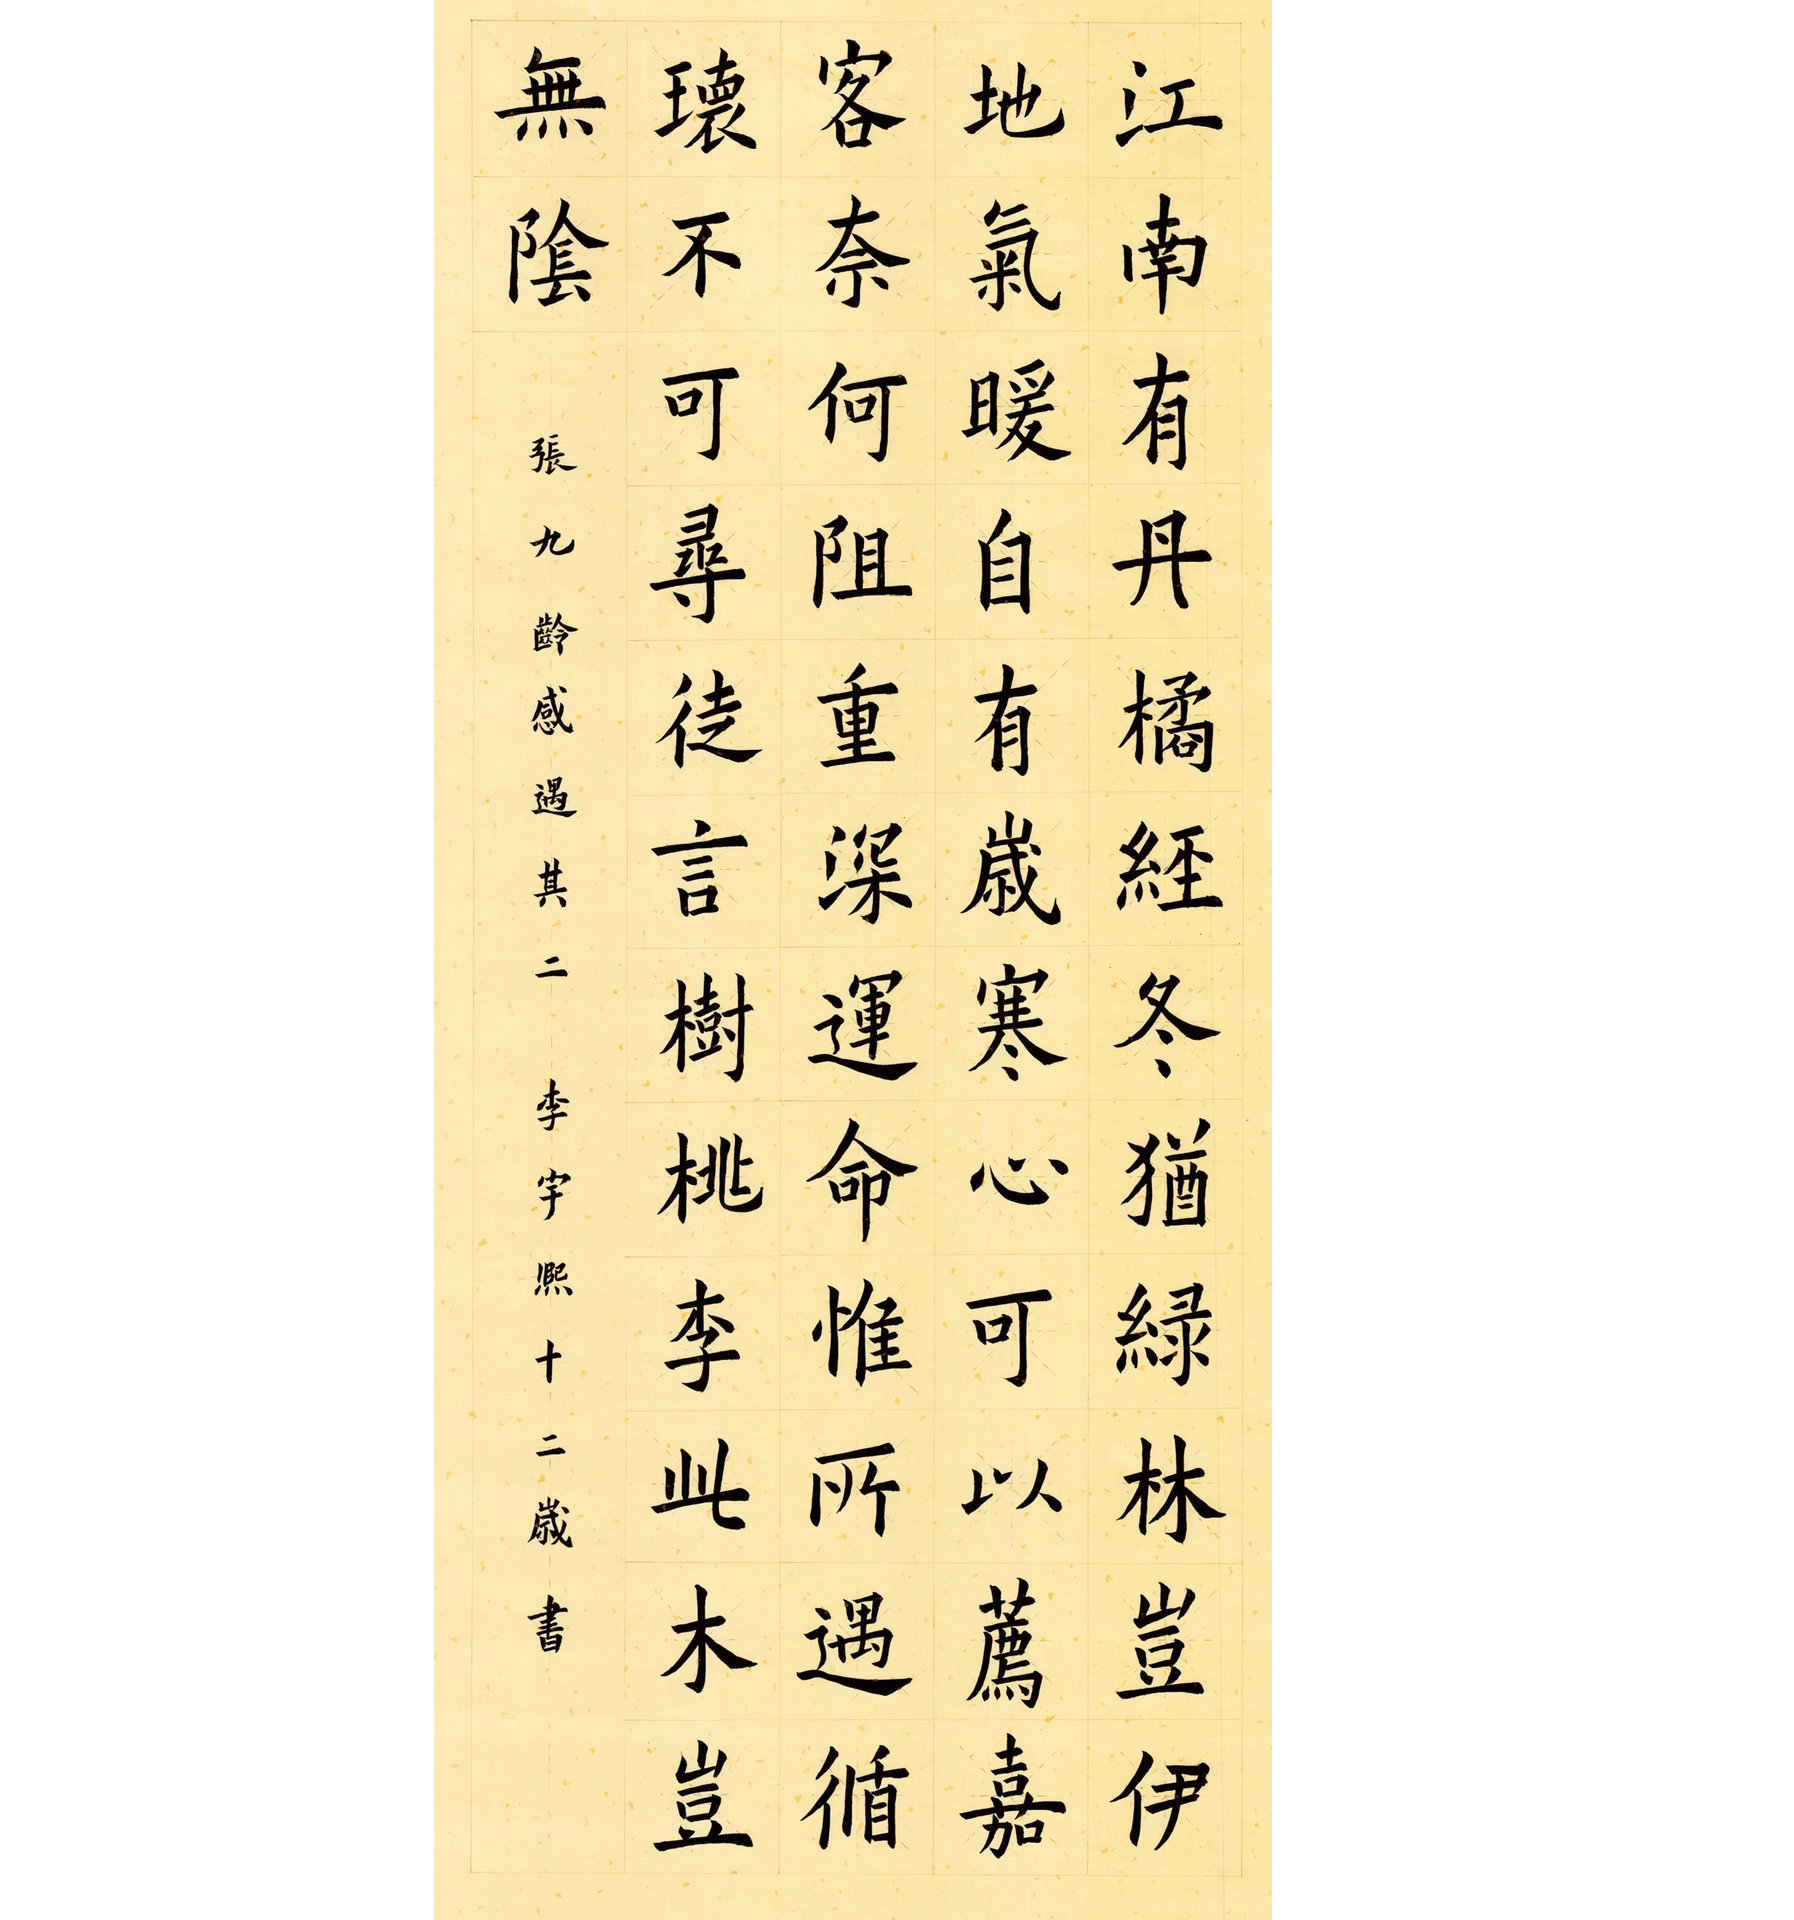 江南有丹橘經冬猶緑林豈伊
地氣暖自有歲寒心可以薦嘉
客奈何阻重深運命惟所遇循
環不可尋徒言樹桃李此木豈
無陰
張九齡感遇其二 李宇熙十二歲書